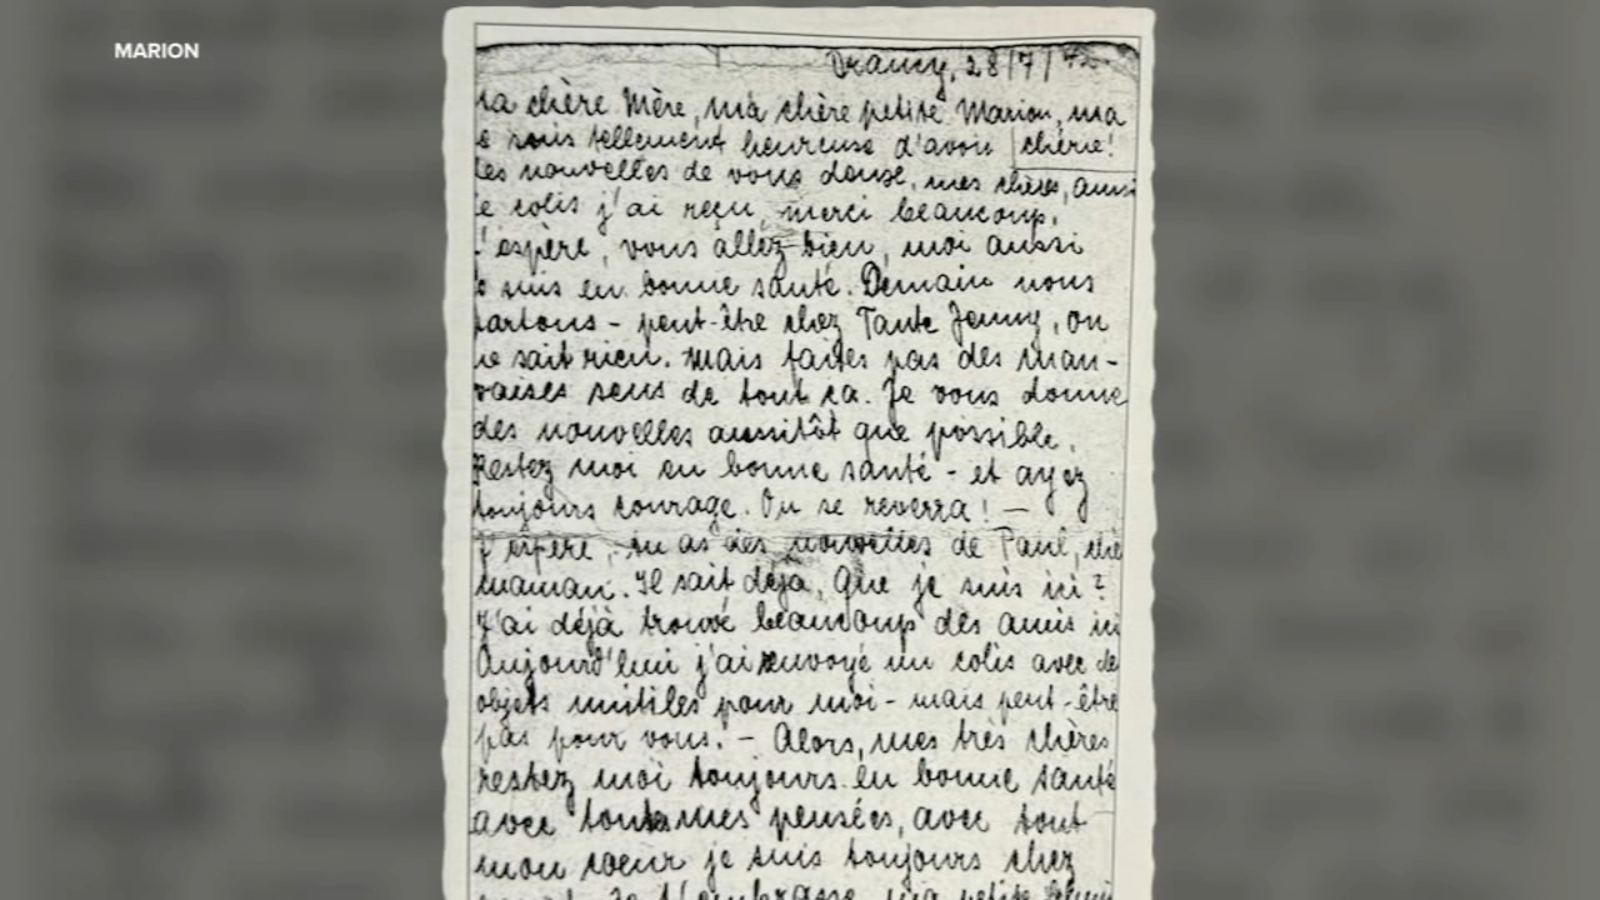 MARION
Drancy, 28/7/42
Ma chère Mère, ma chère petite Marion, ma
chérie!
je suis tellement heureuse d'avoir
des nouvelles de vous deux, mes chères, aussi
le colis j'ai reçu, merci beaucoup.
J'espère, vous allez bien, moi aussi
je suis en bonne santé. Demain nous
partons - peut-être chez Tante Jenny, on
ne sait rien. Mais faites pas des mau-
vaises sens de tout ça. Je vous donne
des nouvelles aussitôt que possible.
Restez moi en bonne santé - et ayez
toujours courage. On se reverra! —
J'espère, tu as des nouvelles de Paul, chè
maman. Il sait déja, que je suis ici?
J'ai déjà trouvé beaucoup des amis ici
Aujourd'hui j'ai envoyé un colis avec de
objets inutiles pour moi - mais peut-être
pas pour vous! - Alors, mes très chères
restez moi toujours en bonne santé
avec toutes mes pensées, avec tout
mon coeur je suis toujours chez
Je t'embrasse, ma petite